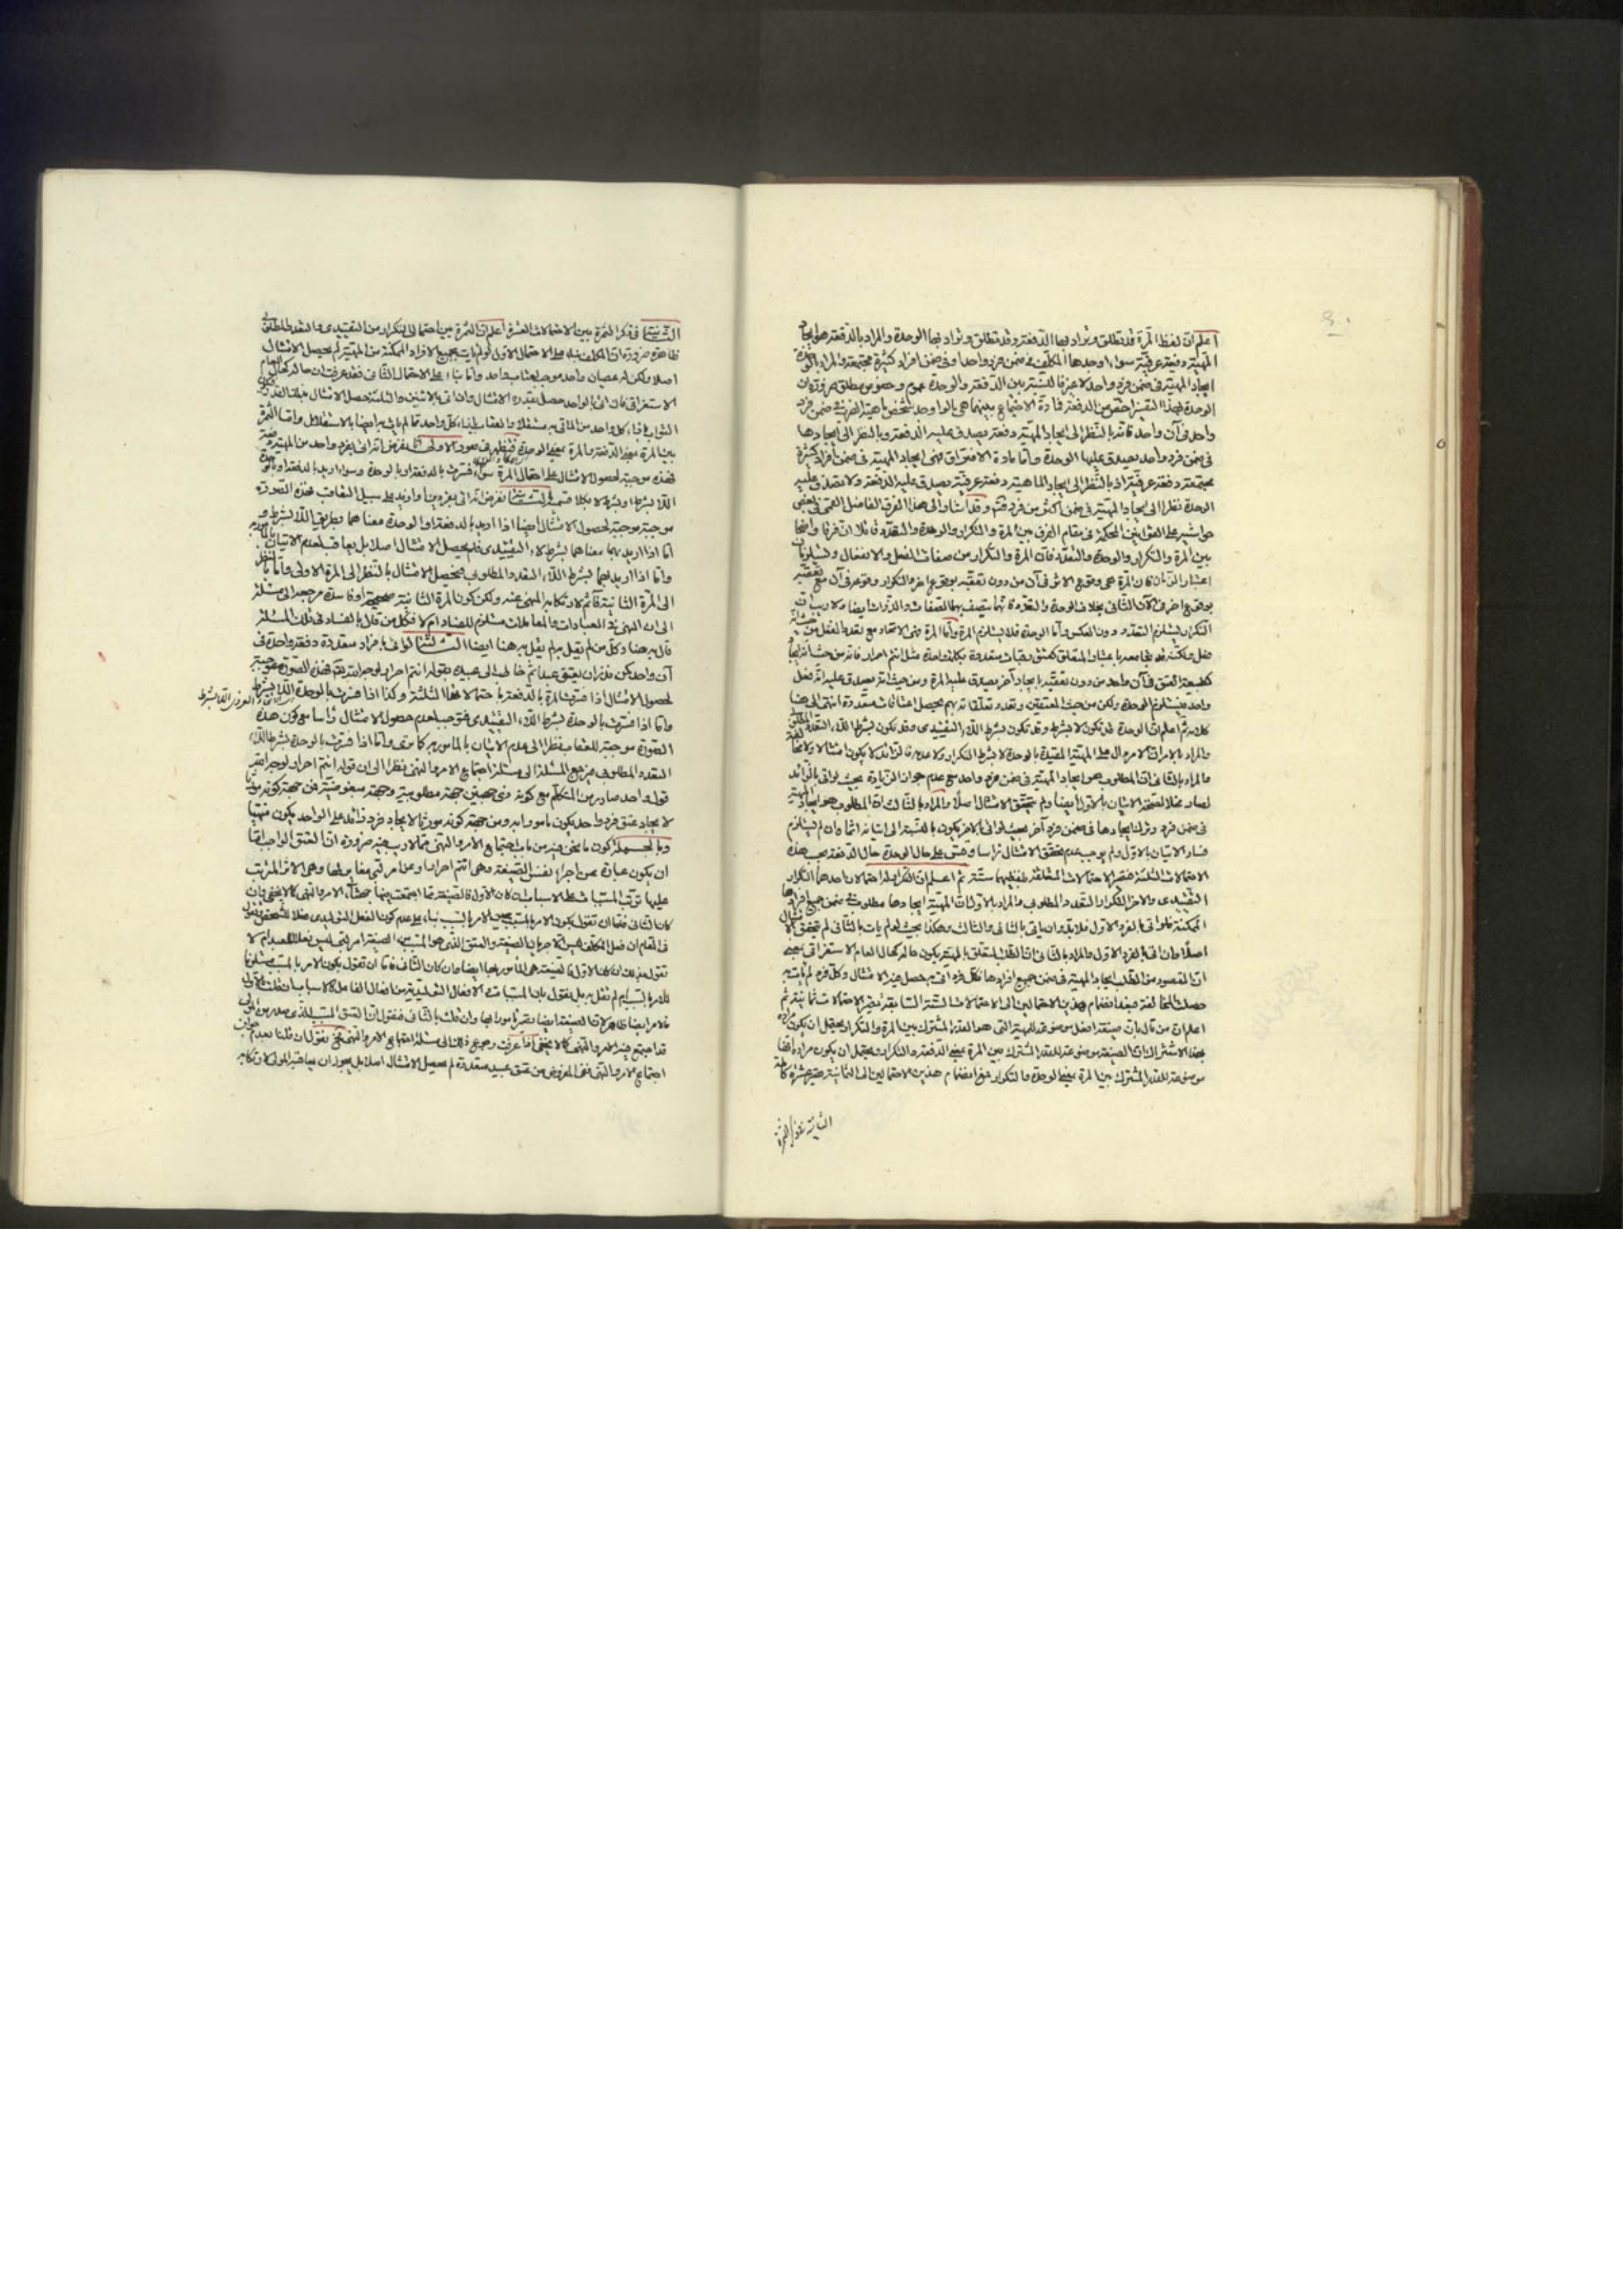 اعلم ان لفظ المرة قد تطلق ويراد بها الدفعة وقد تطلق ويراد بها الوحدة والمراد بالدفعة هو ايجاد
المهية دفعة عرفية سواء اوجدها المكلف في ضمن فرد واحد او في ضمن افراد كثيرة مجتمعة والمراد بالوحدة
ايجاد المهية في ضمن فرد واحد لا غير فالنسبة بين الدفعة والوحدة عموم وخصوص مطلق ضرورة ان
الوحدة بهذا التفسير اخص من الدفعة فمادة الاجتماع بينهما هي ما لو اوجد الشخص ماهية الضرب في ضمن فرد
واحد في آن واحد فانه بالنظر الى ايجاد المهية دفعة يصدق عليه الدفعة وبالنظر الى ايجادها
في ضمن فرد واحد يصدق عليها الوحدة واما مادة الافتراق فهي ايجاد المهية في ضمن افراد كثيرة
مجتمعة دفعة عرفية اذ بالنظر الى ايجاد الماهية دفعة عرفية يصدق عليه الدفعة ولا يصدق عليه
الوحدة نظرا الى ايجاد المهية في ضمن اكثر من فرد فتدبر وقد اشار الى هذا الفرق الفاضل القمي في بعض
حواشيه على القوانين المحكمة في مقام الفرق بين المرة والتكرار والوحدة والتعدد قائلا ان فرقا واضحا
بين المرة والتكرار والوحدة والتعدد فان المرة والتكرار من صفات الفعل والانفعال ويستلزمان
اعتبار الزمان فان المرة هي وقوع الاثر في آن من دون تعقبه بوقوع اخر والتكرار وقوعه في آن مع تعقبه
بوقوع اخر في الآن الثاني بخلاف الوحدة والتعدد فانهما يتصف بهما الصفات والذوات ايضا ولا ريب ان
التكرار يستلزم التعدد دون العكس واما الوحدة فلا يستلزم المرة واما المرة فهي الاتحاد مع تعدد الفعل من حيث انه
فعل ولكنه قد يجامعه باعتبار المتعلق كعتق رقبات متعددة بكلمة واحدة مثل انتم احرار فانه من حيث انه ايجاد
لطبيعة العتق في آن واحد من دون تعقبه بايجاد آخر يصدق عليه المرة ومن حيث انه يصدق عليه انه فعل
واحد فيستلزم الوحدة ولكن من حيث المعتقين وتعدد تعلقاته بهم يحصل اعتاقات متعددة انتهى الى هنا
كلامه ثم اعلم ان الوحدة قد تكون لا بشرط وقد تكون بشرط اللاء التقييدي وقد تكون بشرط اللاء التعدد المطلوبي
والمراد بالاول ان الامر دال على المهية المقيدة بالوحدة لا بشرط التكرار ولا عدمه فالزائد لا يكون امتثالا ولا مخالفة
والمراد بالثاني ان المطلوب هو ايجاد المهية في ضمن فرد واحد مع عدم جواز الزيادة بحيث لو اتى بالزائد
لصار مخلا لصحة الاتيان بالاول ايضا ولم يتحقق الامتثال اصلا والمراد بالثالث ان المطلوب هو ايجاد المهية
في ضمن فرد وترك ايجادها في ضمن فرد آخر بحيث لو اتى بالاخر يكون بالنسبة الى اتيانه اثما وان لم يستلزم
فساد الاتيان بالاول ولم يوجب عدم تحقق الامتثال راسا وقس على حال الوحدة حال الدفعة بحسب هذه
الاحتمالات الثلثة فتصير الاحتمالات المتعلقة بهما ستة ثم اعلم ان للتكرار ايضا احتمالان احدهما التكرار
التقييدي والاخر التكرار التعدد المطلوبي والمراد بالاول ان المهية ايجادها مطلوب في ضمن جميع افرادها
الممكنة فلو اتى بالفرد الاول فلا بد وان ياتي بالثاني والثالث وهكذا بحيث لو لم يات بالثاني لم يتحقق الامتثال
اصلا وان اتى بالفرد الاول والمراد بالثاني ان الطلب المتعلق بالمهية يكون حاله كحال العام الاستغراقي بمعنى
ان المقصود من الطلب ايجاد المهية في ضمن جميع افرادها فكل فرد اتى به حصل فيه الامتثال وكل فرد لم يات به
حصلت المخالفة فبعد انضمام هذين الاحتمالين الى الاحتمالات الستة السابقة تصير الاحتمالات ثمانية ثم
اعلم ان من قال بان صيغة افعل موضوعة للمهية التي هو القدر المشترك بين المرة والتكرار يحتمل ان يكون مراده
بهذا الاشتراك ان الصيغة موضوعة للقدر المشترك بين المرة بمعنى الدفعة والتكرار ويحتمل ان يكون مراده انها
موضوعة للقدر المشترك بين المرة بمعنى الوحدة والتكرار فمع انضمام هذين الاحتمالين الى الثمانية تصير عشرة كاملة
الثانية في ذكر الثمرة
في ذكر الثمرة بين الاحتمالات العشرة اعلم ان الثمرة بين احتمالي التكرار من التقييدي والتعدد المطلوبي
ظاهرة ضرورة ان المكلف بناء على الاحتمال الاول لو لم يات بجميع الافراد الممكنة من المهية لم يحصل الامتثال
اصلا ولكن له عصيان واحد موجب لعقاب واحد واما بناء على الاحتمال الثاني فقد عرفت ان حاله كحال العام
الاستغراقي فان اتى بالواحد حصل بقدره الامتثال وان اتى بالاثنين والثلثة حصل الامتثال بذلك القدر
واما الثمرة
بين المرة بمعنى الدفعة والمرة بمعنى الوحدة فتظهر في صور الاولى انا نفرض انه اتى بفرد واحد من المهية
فهذه موجبة لحصول الامتثال على احتمال المرة سواء فسرت بالدفعة او بالوحدة وسواء اريد بالدفعة او بالوحدة
اللا بشرط او بشرط لا بكلا قسميه الثانية نفرض انه اتى بفردين او ازيد على سبيل التعاقب فهذه الصورة
موجبة لحصول الامتثال ايضا اذا اريد بالدفعة او الوحدة معناهما بطريق اللا بشرط و
اما اذا اريد بهما معناهما بشرط لاء التقييدي فلم يحصل الامتثال اصلا بل يعاقب لعدم الاتيان بالمامور به
واما اذا اريد بهما بشرط اللاء التعدد المطلوبي فيحصل الامتثال بالنظر الى المرة الاولى واما بالنظر
الى المرة الثانية فآثم لارتكابه المنهي عنه ولكن كون المرة الثانية صحيحة او فاسدة مرجعه الى مسئلة
الى ان النهي في العبادات والمعاملات مستلزم للفساد ام لا فكل من قال بالفساد في تلك المسئلة
قال به هنا وكل من لم يقل به لم يقل به هنا ايضا الثالثة لو اتى بافراد متعددة دفعة واحدة في
آن واحد كمن نذر ان يعتق عبدا ثم خاطب الى عبيده بقوله انتم احرار لوجه الله تعالى فهذه الصورة موجبة
لحصول الامتثال اذا فسرت المرة بالدفعة باحتمالاتها الثلثة وكذا اذا فسرت بالوحدة اللا بشرط
واما اذا فسرت بالوحدة بشرط اللاء التقييدي فتوجب لعدم حصول الامتثال راسا مع كون هذه
الصورة موجبة للعقاب نظرا الى عدم الاتيان بالمامور به كما مر واما اذا فسرت بالوحدة بشرط اللاء
التعدد المطلوبي فيرجع المسئلة الى مسئلة اجتماع الامر والنهي نظرا الى ان قوله انتم احرار لوجه الله
قول واحد صادر من المتكلم مع كونه ذي جهتين جهة مطلوبية وجهة مبغوضية فمن جهة كونه مورثا
لايجاد عتق فرد واحد يكون مامورا به ومن جهة كونه مورثا لايجاد فرد زائد على الواحد يكون منهيا
وبالجملة كون ما نحن فيه من باب اجتماع الامر والنهي مما لا ريب فيه ضرورة ان العتق الواجب اما
ان يكون عبارة عن اجراء نفس الصيغة وهي انتم احرار او عن امر آخر مغاير لها وهي الاثر المترتب
عليها ترتب المسببات على الاسباب فان كان الاول فالصيغة مما اجتمعت فيها جهتا الامر والنهي كما لا يخفى وان
كان الثاني فاما ان نقول بكون الامر بالمسبب عين الامر بالسبب بناء على عدم كون الفعل التوليدي فعلا للشخص